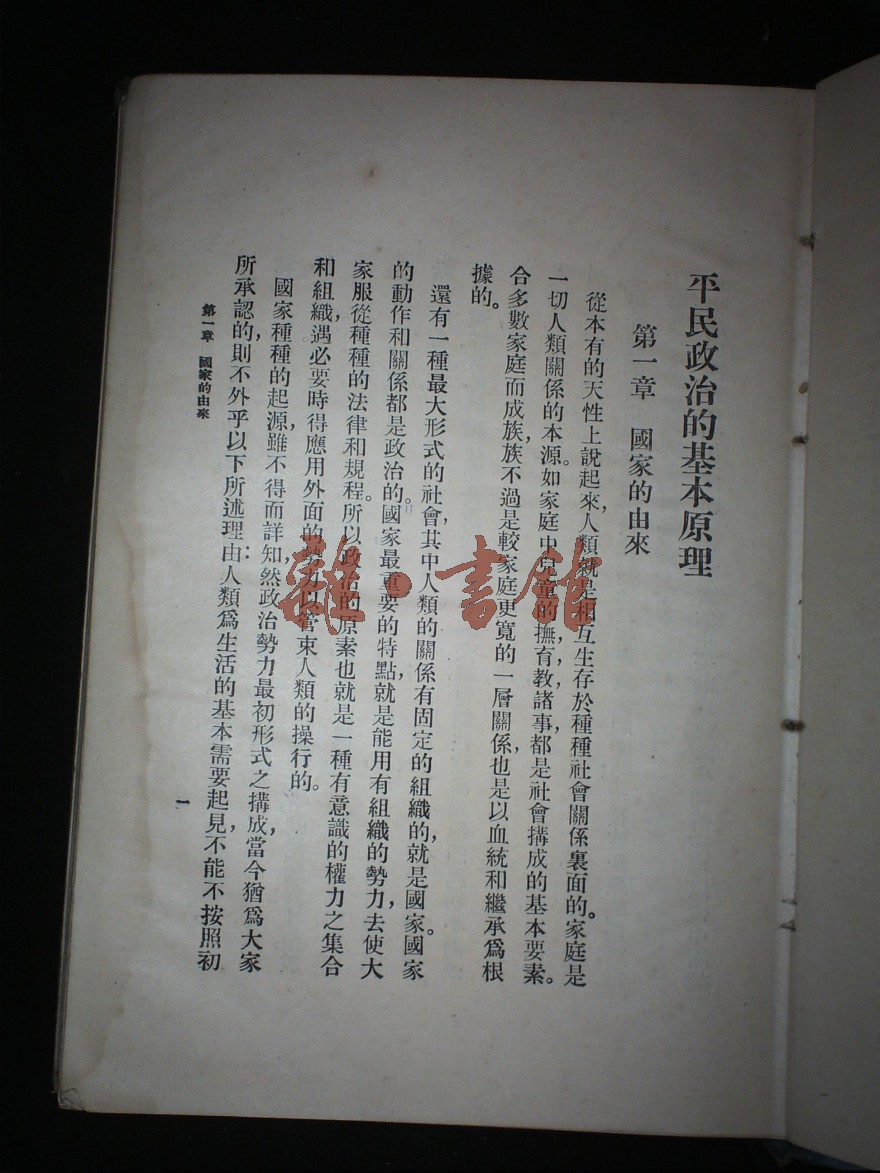 平民政治的基本原理
第一章　國家的由來
從本有的天性上說起來，人類就是相互生存於種種社會關係裏面的。家庭是
一切人類關係的本源。如家庭中兒童的撫育，教，諸事，都是社會搆成的基本要素。
合多數家庭而成族，族不過是較家庭更寬的一層關係，也是以血統和繼承爲根
據的。
還有一種最大形式的社會，其中人類的關係有固定的組織的，就是國家。國家
的動作和關係都是政治的。國家最重要的特點，就是能用有組織的勢力，去使大
家服從種種的法律和規程。所以政治的原素也就是一種有意識的權力之集合
和組織，遇必要時得應用外面的勢力以管束人類的操行的。
國家種種的起源，雖不得而詳知，然政治勢力最初形式之搆成，當今猶爲大家
所承認的，則不外乎以下所述理由：人類爲生活的基本需要起見，不能不按照初
第一章　國家的由來
一
雜·書館